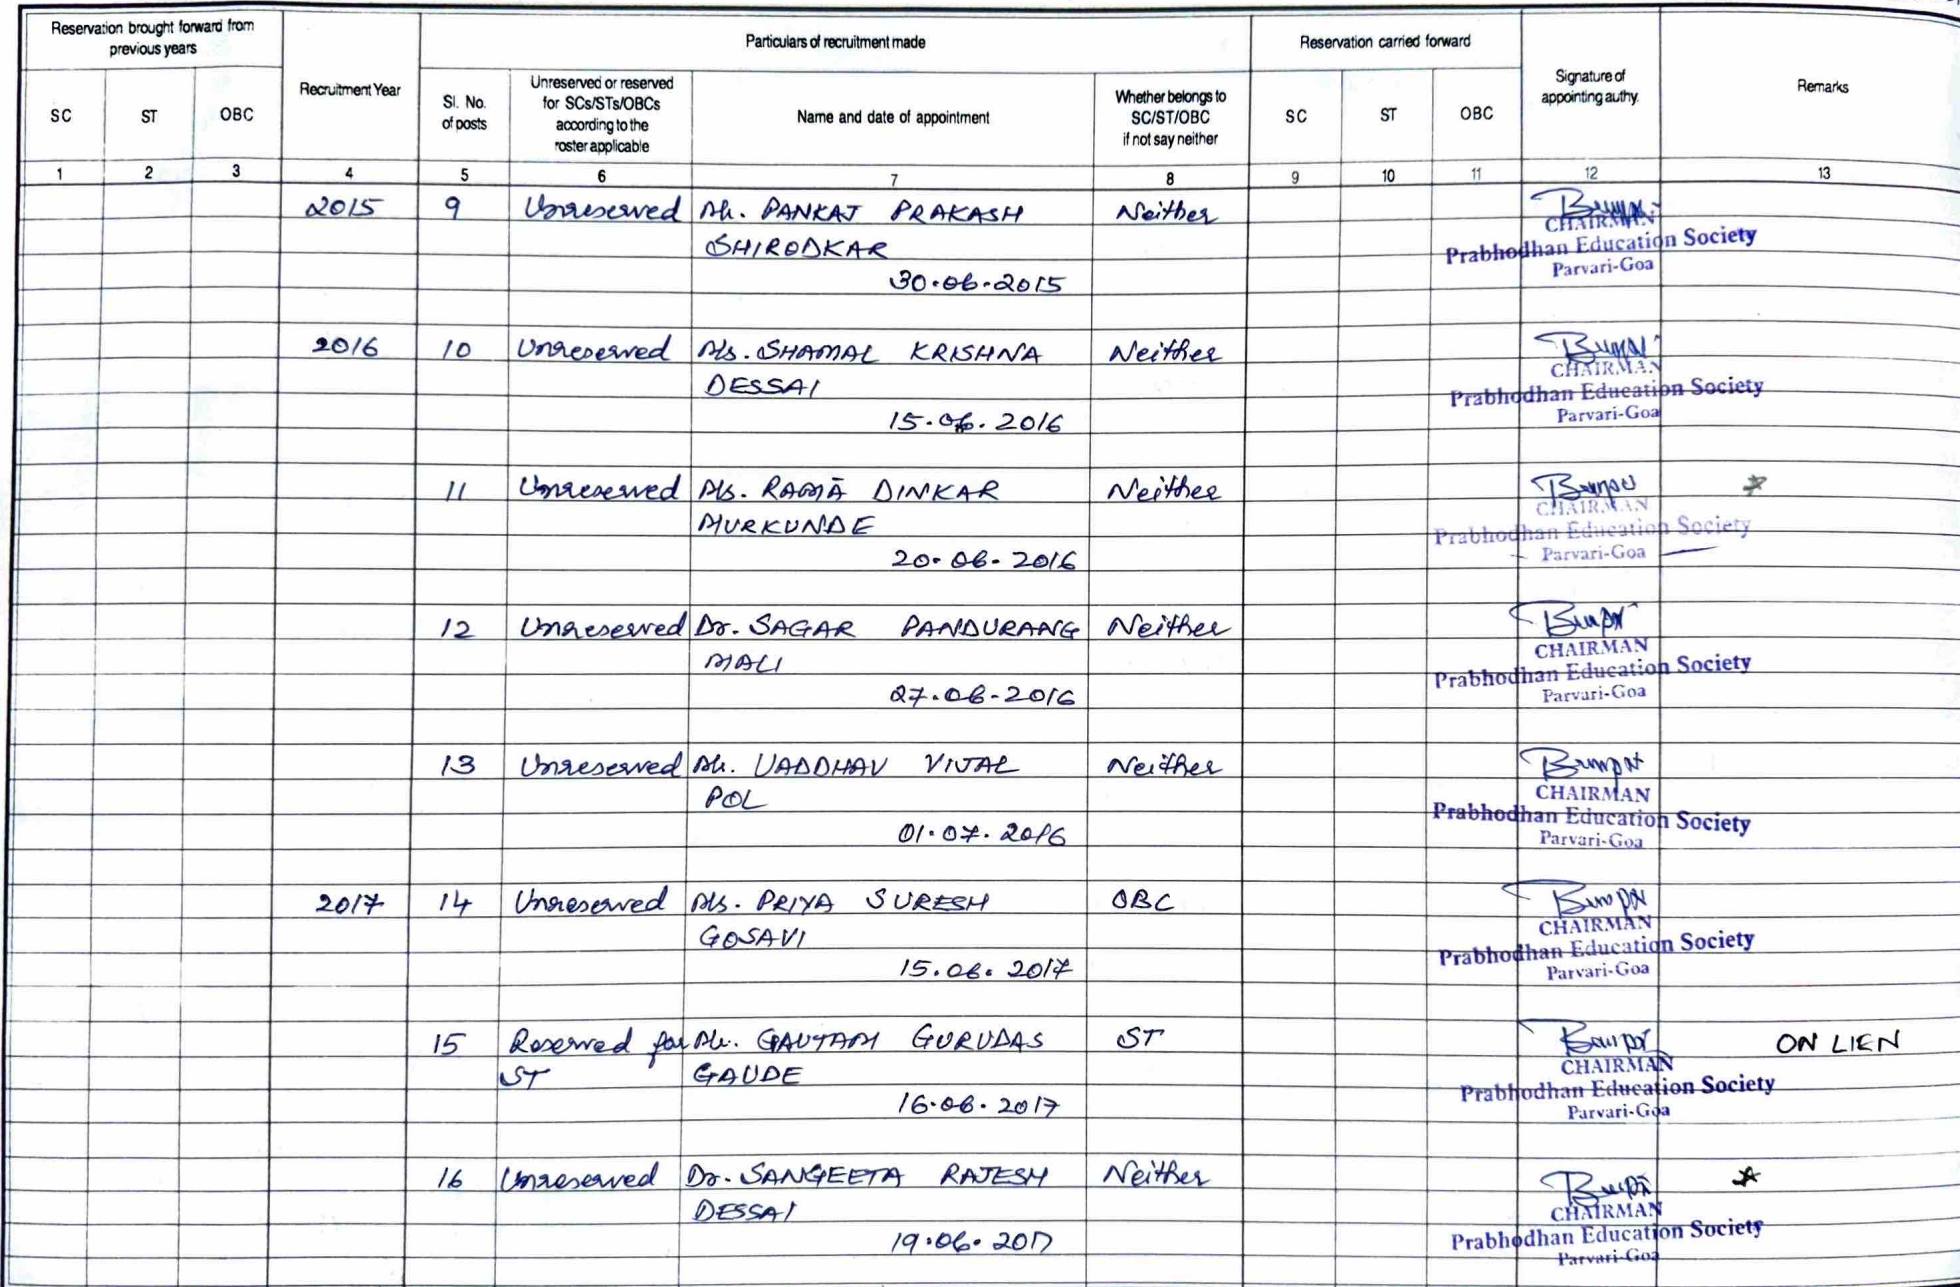 Reservation brought forward from previous years
Recruitment Year
Particulars of recruitment made
Reservation carried forward
Signature of appointing authy.
Remarks
SC ST OBC
Sl. No. of posts
Unreserved or reserved for SCs/STs/OBCs according to the roster applicable
Name and date of appointment
Whether belongs to SC/ST/OBC if not say neither
SC ST OBC
1 2 3 4 5 6 7 8 9 10 11 12 13
2015 9 Unreserved Mr. PANKAJ PRAKASH Neither
SHIRODKAR
30.06.2015
CHAIRMAN
Prabhodhan Education Society
Parvari-Goa
2016 10 Unreserved Ms. SHAMAL KRISHNA Neither
DESSAI
15.06.2016
CHAIRMAN
Prabhodhan Education Society
Parvari-Goa
11 Unreserved Ms. RAMA DINKAR Neither
MURKUNDE
20.06.2016
CHAIRMAN
Prabhodhan Education Society
Parvari-Goa
12 Unreserved Dr. SAGAR PANDURANG Neither
MALI
27.06.2016
CHAIRMAN
Prabhodhan Education Society
Parvari-Goa
13 Unreserved Mr. UADDHAV Neither
POL
01.07.2016
CHAIRMAN
Prabhodhan Education Society
Parvari-Goa
2017 14 Unreserved Ms. PRIYA SURESH OBC
GOSAVI
15.06.2017
CHAIRMAN
Prabhodhan Education Society
Parvari-Goa
15 Reserved for Mr. GAUTAM GURUDAS ST ON LIEN
ST GAUDE
16.06.2017
CHAIRMAN
Prabhodhan Education Society
Parvari-Goa
16 Unreserved Dr. SANGEETA RAJESH Neither
DESSAI
19.06.2017
CHAIRMAN
Prabhodhan Education Society
Parvari-Goa